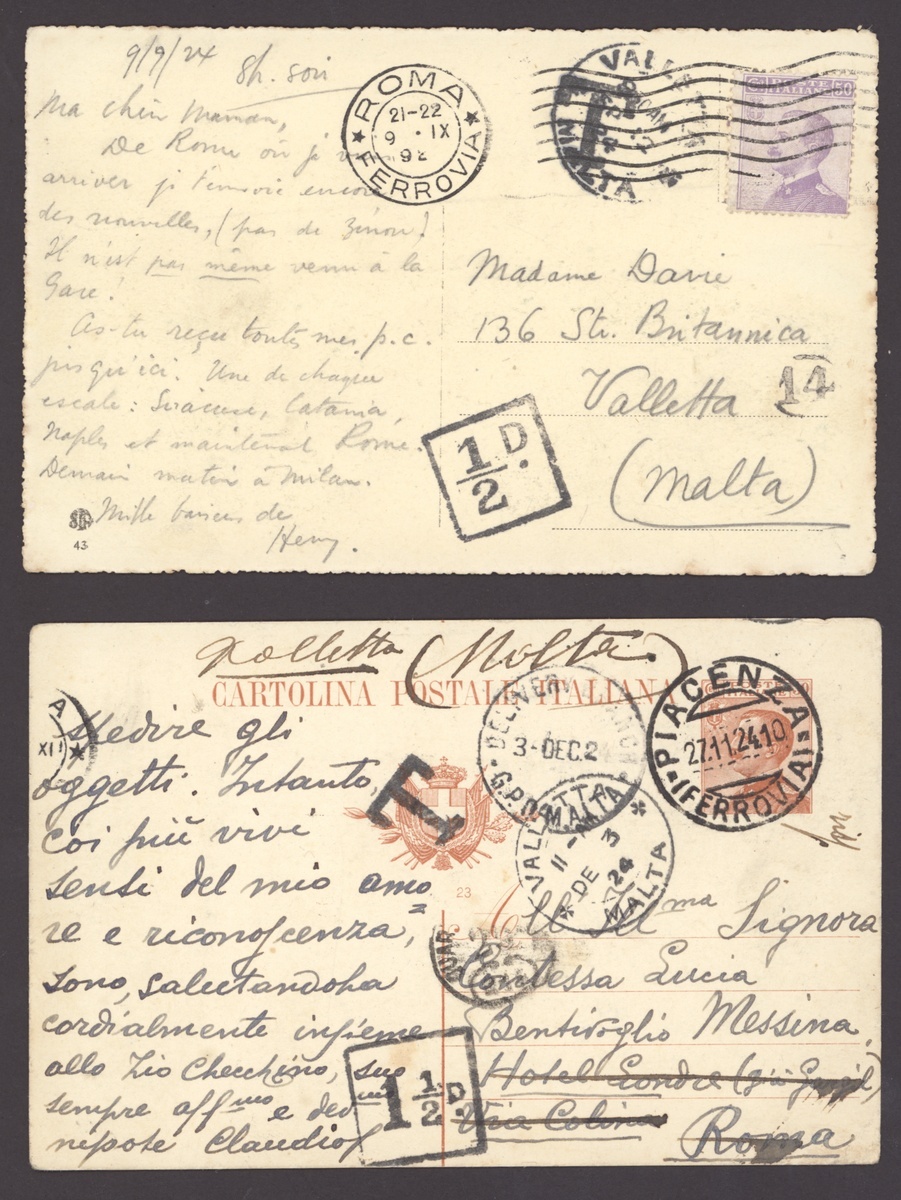 9/9/24 8h. soir
Ma chère Maman,
De Rome où je viens
arriver je t'envoie encore
des nouvelles, (pas de Zénon)
Il n'est pas même venu à la
Gare!
As-tu reçu toutes mes p.c.
jusqu'ici. Une de chaque
escale: Siracuse, Catania,
Naples et maintenant Rome.
Demain matin à Milan.
Mille baisers de
Henry.
43
ROMA
21-22
9 · IX
FERROVIA
VALLETTA
MALTA
T
POSTE ITALIANE 50
Madame Davie
136 Str. Britannica
Valletta
14
(Malta)
1/2 D.
Valletta (Malta)
CARTOLINA POSTALE ITALIANA
A
XII
spedire gli
oggetti. Intanto,
coi più vivi
sensi del mio amo=
re e riconoscenza,
sono, salutandola
cordialmente insieme
allo Zio Checchino, suo
sempre aff.mo e dev.mo
nipote Claudio
T
23
DELIVERY BRANCH
3-DEC.2
G.P.O. MALTA
VALLETTA
11-AM
DE 3
24
MALTA
PIACENZA
27.11.24.10
(FERROVIA)
Alla Ill.ma Signora
Contessa Lucia
Bentivoglio Messina
Hotel Londre
Via Colina
Roma
1 1/2 D.